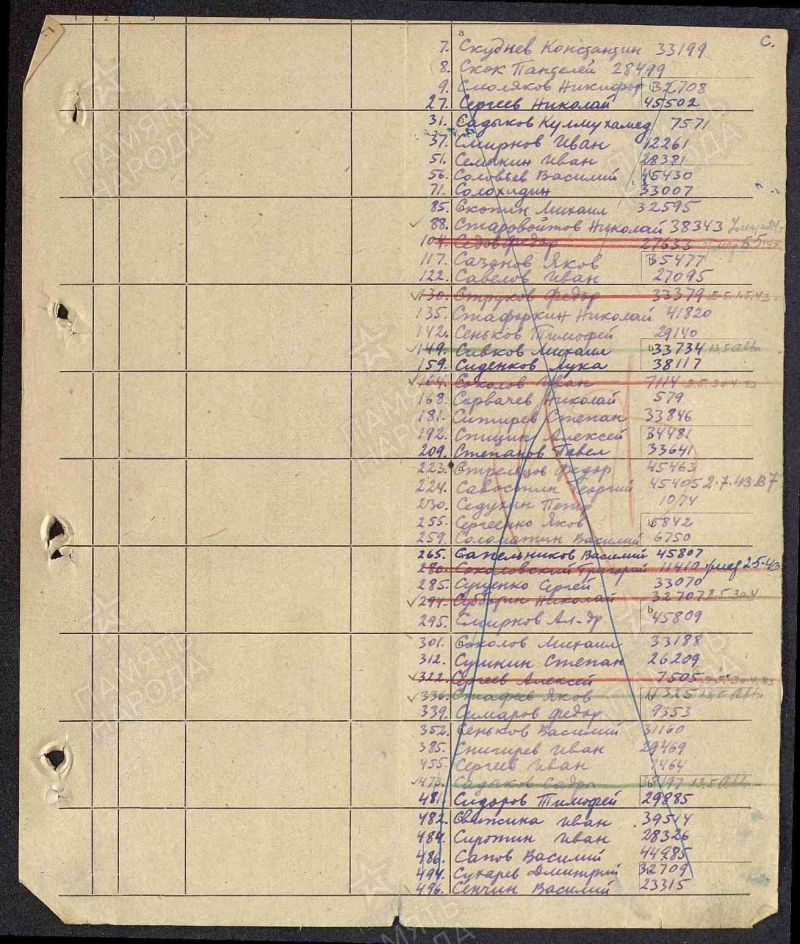 С.
7. Скуднев Константин 33199
8. Скок Пантелей 28499
9. Смоляков Никифор 32708
27. Сергеев Николай 45502
31. Садыков Кулмухамед 7571
37. Смирнов Иван 12261
51. Семакин Иван 28381
56. Соловьев Василий 45430
71. Солохидин 33007
85. Скопин Михаил 32595
88. Старовойтов Николай 38343
104. Седов Федор 27633
117. Сачанов Яков 35477
122. Савелов Иван 27095
130. Струков Федор 33379
135. Стафоркин Николай 41820
142. Сеньков Тимофей 29140
149. Сивков Михаил 33734
159. Сиденков Лука 38117
164. Соколов Иван 7114
168. Сорвачев Николай 579
181. Ситирев Степан 33846
192. Спицин Алексей 34481
209. Степанов Павел 33641
223. Стрельцов Федор 45463
224. Савостин Георгий 45405 2.7.43 В 7
230. Седухин Петр 1074
255. Сергеенко Яков 5842
259. Соломатин Василий 6750
265. Сапельников Василий 45807
280. Соколовский Григорий 11410
285. Сущенко Сергей 33070
294. Субботин Николай 32707
295. Смирнов Ал-др 45809
301. Соколов Михаил 33188
312. Сушкин Степан 26209
322. Сергеев Алексей 7505
336. Стафеев Яков 11325
339. Симаров Федор 9353
352. Сеньков Василий 31160
385. Снигирев Иван 29469
455. Сергеев Иван 1464
473. Садаков Садра
481. Сидоров Тимофей 29885
482. Свижина Иван 39514
484. Сиротин Иван 28326
486. Сапов Василий 44985
494. Сухарев Дмитрий 32709
496. Сенчин Василий 23315
ПАМЯТЬ НАРОДА